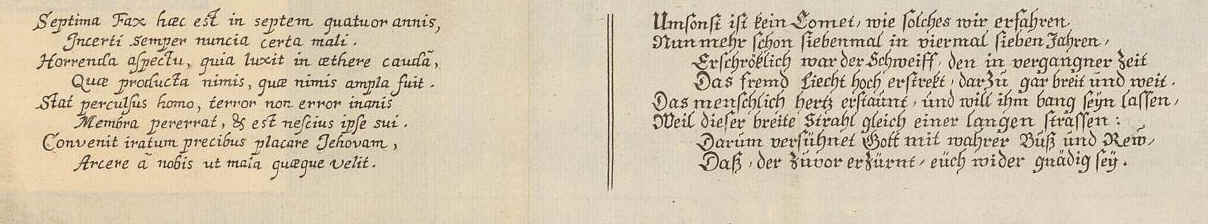 Septima Fax hæc est in septem quatuor annis,
Incerti semper nuncia certa mali.
Horrenda aspectu, quia luxit in æthere caudâ,
Quæ producta nimis, quæ nimis ampla fuit.
Stat perculsus homo, terror non error inanis
Membra pererrat, & est nescius ipse sui.
Convenit iratum precibus placare Jehovam,
Arcere â nobis ut mala quæque velit.
Umsonst ist kein Comet, wie solches wir erfahren
Nunmehr schon siebenmal in viermal sieben Jahren,
Erschröklich war der Schweiff, den in vergangner Zeit
Das fremd Liecht hoch erstrekt, darzu gar breit und weit.
Das menschlich hertz erstaunt, und will ihm bang seÿn lassen,
Weil dieser breite Strahl gleich einer langen strassen:
Darum versühnet Gott mit wahrer Buß und Rew,
Daß, der zuvor erzürnt, euch wider gnädig seÿ.